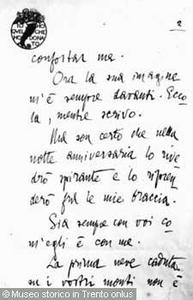 IO HO
QUEL CHE
HO DO
NATO
2
confortar me.
Ora la sua imagine
m'è sempre davanti. Ecco
la, mentre scrivo.
Ma son certo che nella
notte anniversaria lo rive
drò spirante e lo ripren
derò fra le mie braccia.
Sia sempre con voi co
m'egli è con me.
La prima neve caduta
su i vostri monti non è
© Museo storico in Trento onlus